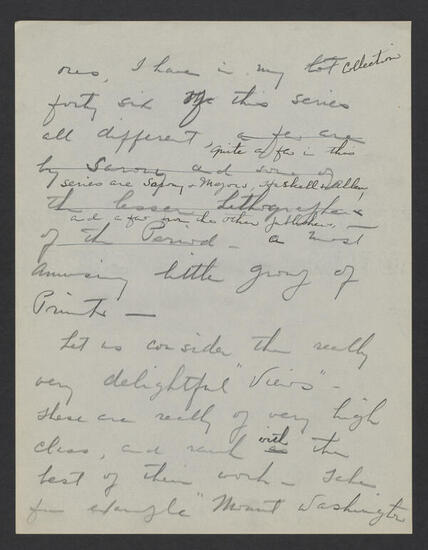 ones, I have in my lot collection
forty six of this series
all different, a few are
quite a few in this
by Sarony and some of
series are Sarony & Major's, Haskell & Allen,
the lesser Lithographers
and a few from the other publishers,
of the Period - a most
amusing little group of
Prints -
Let us consider the really
very delightful "Views" -
these are really of very high
class, and rank with as the
best of their work - Take
for example "Mount Washington